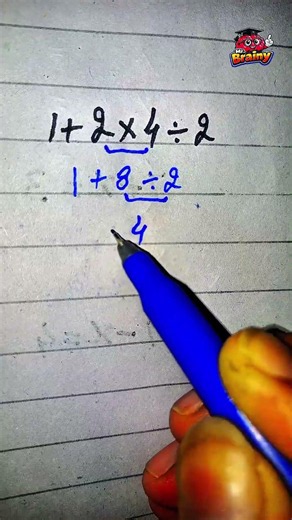 Mr.
Brainy
1 + 2 × 4 ÷ 2
1 + 8 ÷ 2
4